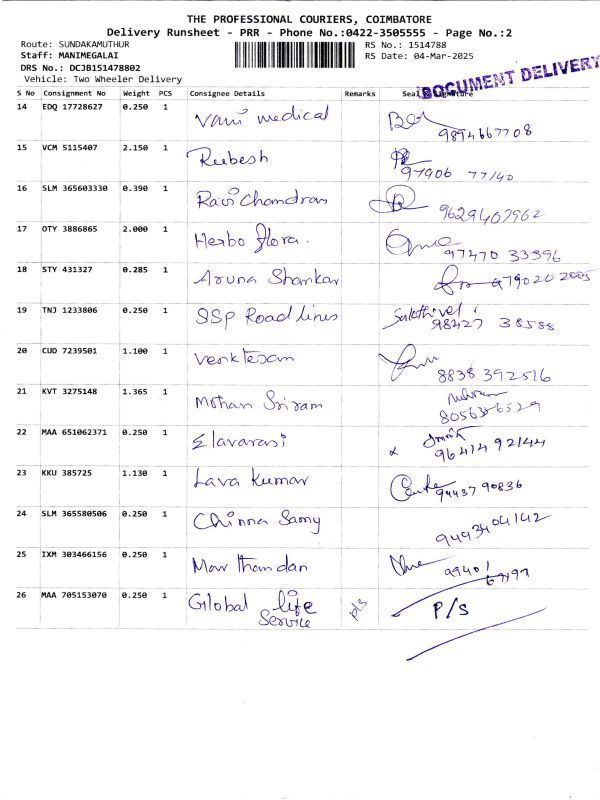 THE PROFESSIONAL COURIERS, COIMBATORE
Delivery Runsheet - PRR - Phone No.:0422-3505555 - Page No.:2
Route: SUNDAKAMUTHUR RS No.: 1514788
Staff: MANIMEGALAI RS Date: 04-Mar-2025
DRS No.: DCJB151478802
Vehicle: Two Wheeler Delivery
DOCUMENT DELIVERY
S No Consignment No Weight PCS Consignee Details Remarks Seal & Signature
14 EDQ 17728627 0.250 1 Vani medical 9894667708
15 VCM 5115407 2.150 1 Rubesh 97906 77140
16 SLM 365603330 0.390 1 Ravi Chandran 9629407962
17 OTY 3886865 2.000 1 Herbo flora. 97470 33396
18 STY 431327 0.285 1 Aruna Shankar 979020 2005
19 TNJ 1233806 0.250 1 SSP Road lines Sakthivel 98427 38588
20 CUD 7239501 1.100 1 Venktesan 8838 392516
21 KVT 3275148 1.365 1 Mohan Sriram
22 MAA 651062371 0.250 1 Elavarasi 96414 92144
23 KKU 385725 1.130 1 Lava Kumar 94437 90836
24 SLM 365580506 0.250 1 Chinna Samy
25 IXM 303466156 0.250 1 Marthandan
26 MAA 705153070 0.250 1 Global life P/S P/S
Service